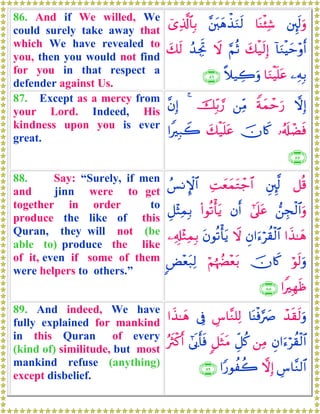 86. And if We willed, We
could surely take away that
which We have revealed to
you, then you would not find
for you in that respect a
defender against Us.
وَلَئِن شِئْنَا لَنَذْهَبَنَّ بِٱلَّذِىٓ
أَوْحَيْنَآ إِلَيْكَ ثُمَّ لَا تَجِدُ لَكَ
بِهِۦ عَلَيْنَا وَكِيلًا ﴿٨٦﴾
87. Except as a mercy from
your Lord. Indeed, His
kindness upon you is ever
great.
إِلَّا رَحْمَةً مِّن رَّبِّكَ ۚ إِنَّ
فَضْلَهُۥ كَانَ عَلَيْكَ كَبِيرًا
﴿٨٧﴾
88. Say: “Surely, if men
and jinn were to get
together in order to
produce the like of this
Quran, they will not (be
able to) produce the like
of it, even if some of them
were helpers to others.”
قُل لَّئِنِ ٱجْتَمَعَتِ ٱلْإِنسُ
وَٱلْجِنُّ عَلَىٰٓ أَن يَأْتُوا۟ بِمِثْلِ
هَـٰذَا ٱلْقُرْءَانِ لَا يَأْتُونَ بِمِثْلِهِۦ
وَلَوْ كَانَ بَعْضُهُمْ لِبَعْضٍ
ظَهِيرًا ﴿٨٨﴾
89. And indeed, We have
fully explained for mankind
in this Quran of every
(kind of) similitude, but most
mankind refuse (anything)
except disbelief.
وَلَقَدْ صَرَّفْنَا لِلنَّاسِ فِى هَـٰذَا
ٱلْقُرْءَانِ مِن كُلِّ مَثَلٍ فَأَبَىٰٓ أَكْثَرُ
ٱلنَّاسِ إِلَّا كُفُورًا ﴿٨٩﴾